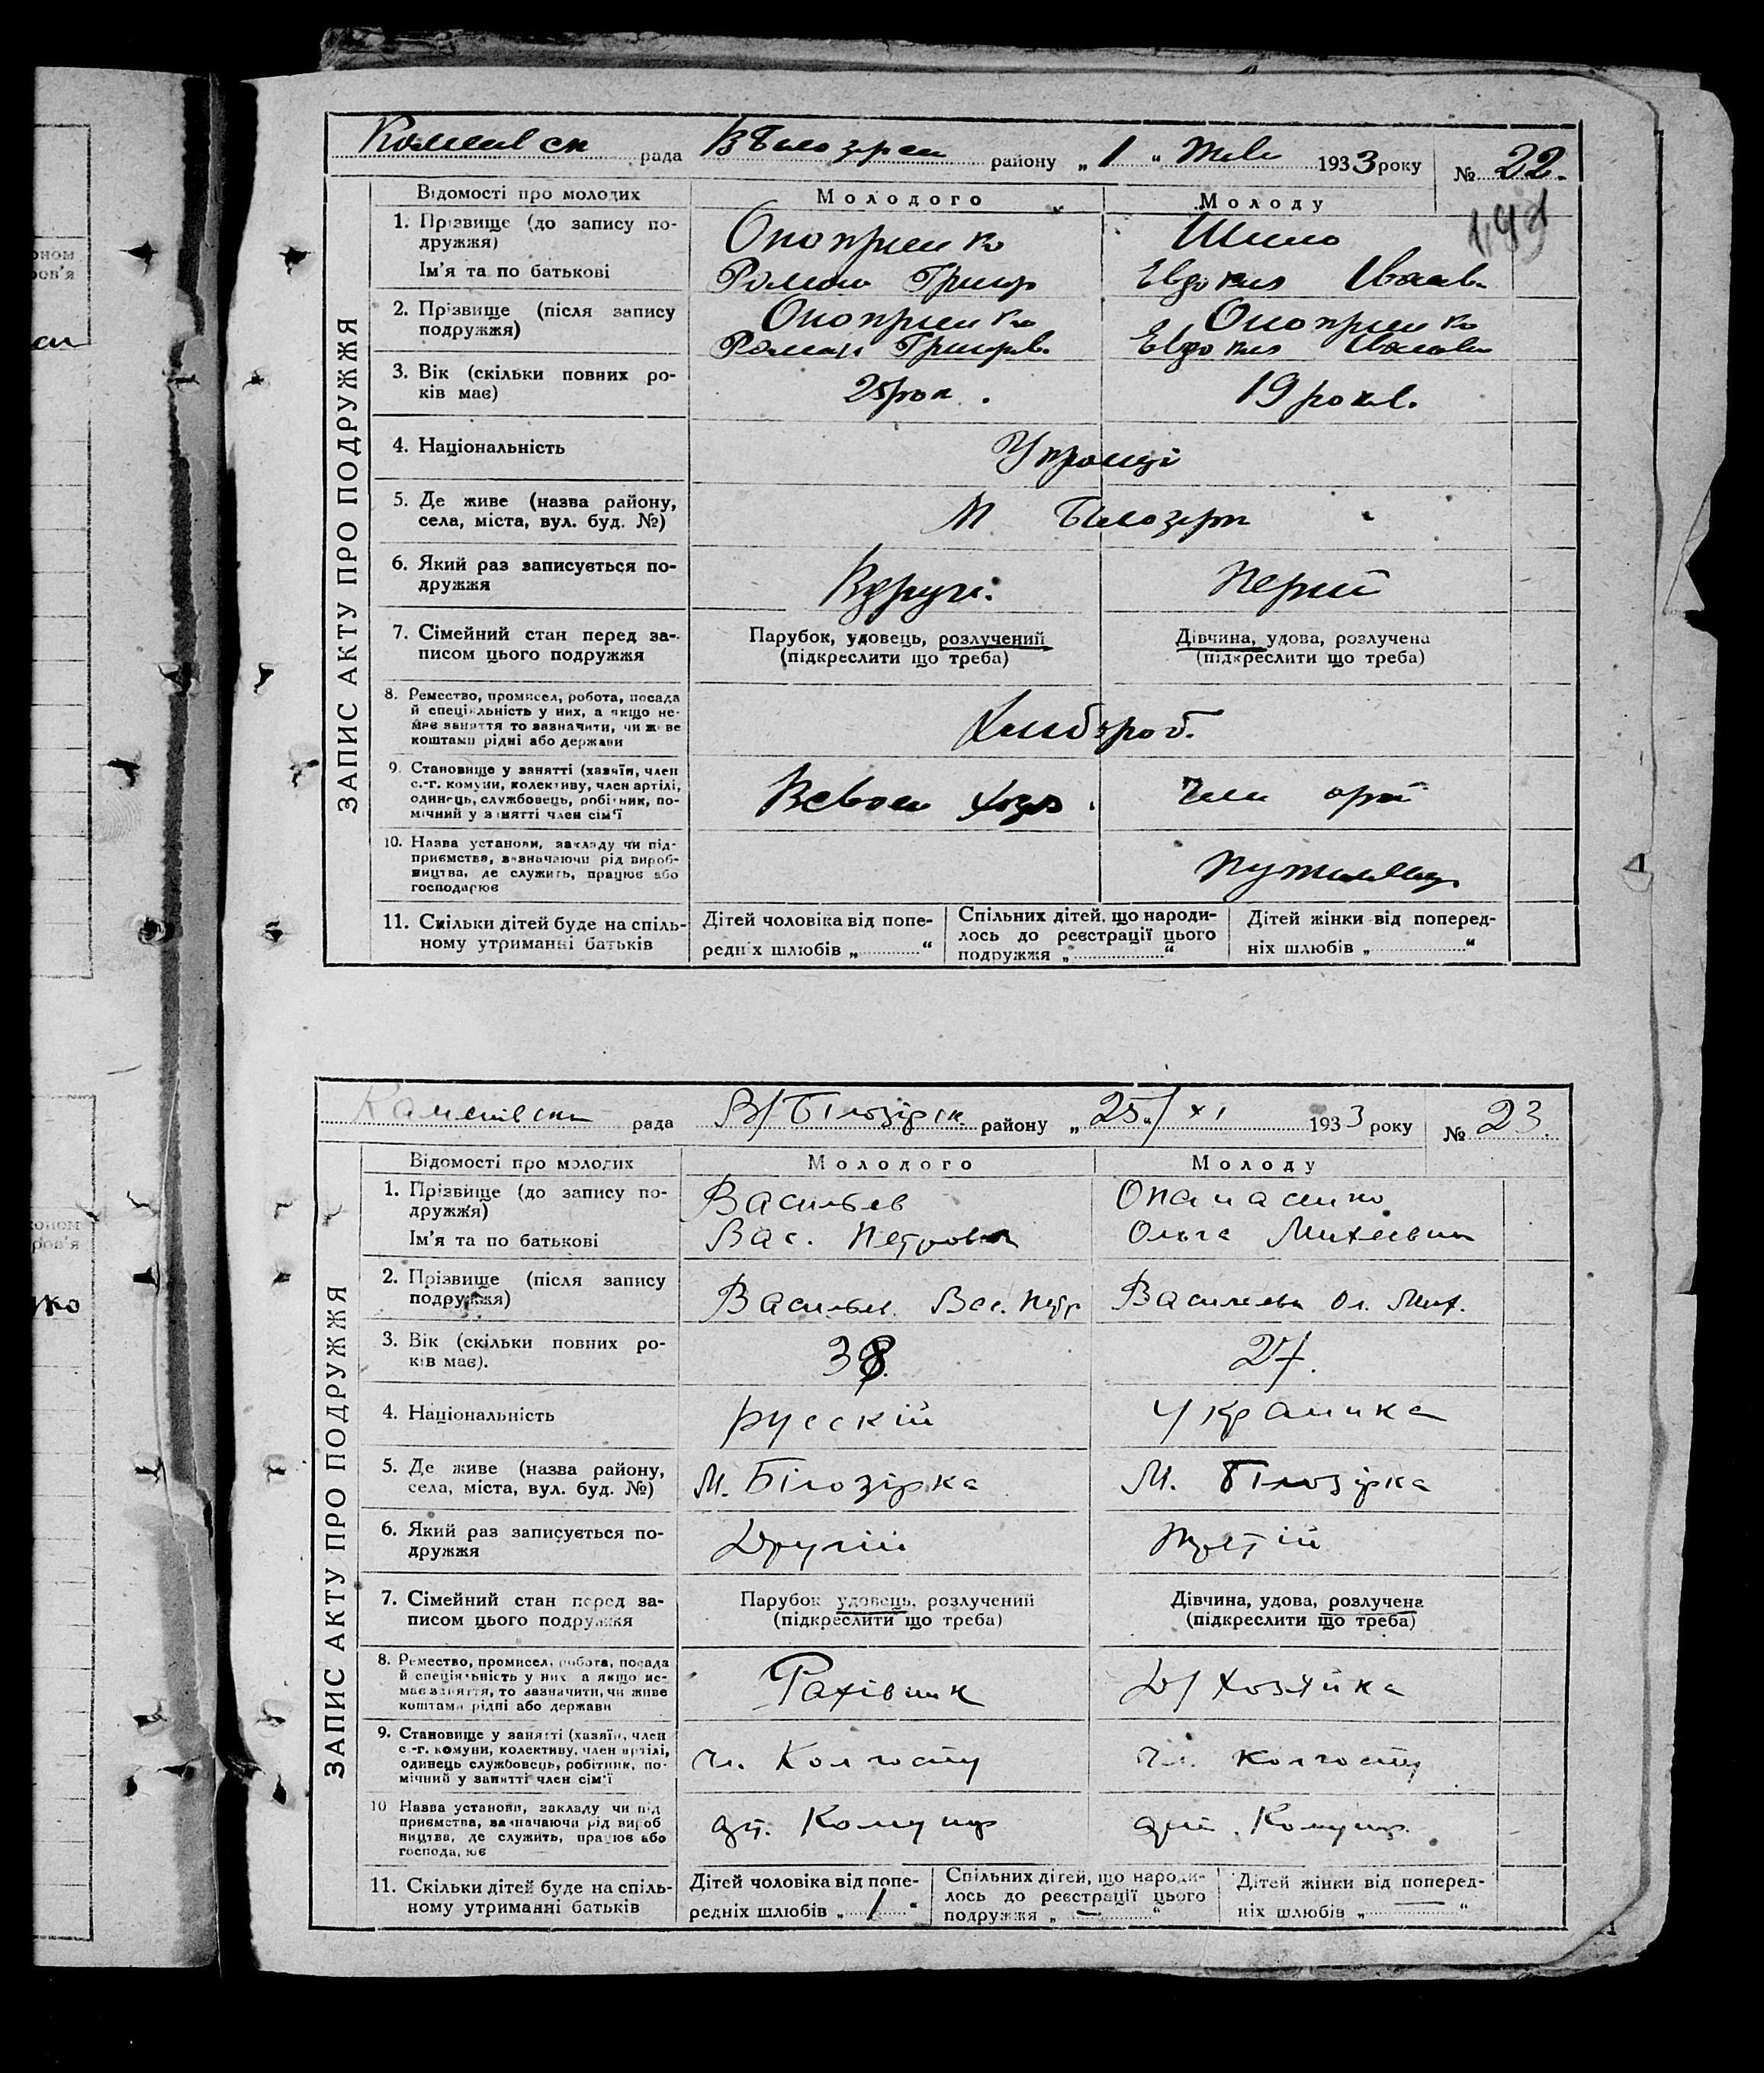 рада району „ 1 “ 1933 року № 22.
Відомості про молодих Молодого Молоду
ЗАПИС АКТУ ПРО ПОДРУЖЖЯ
1. Прізвище (до запису по-
дружжя)
Оноприенко Шило
Ім'я та по батькові
Роман Григор Евдокия Иванв
2. Прізвище (після запису
подружжя)
Оноприенко Оноприенко
Роман Григорв. Евдокия
3. Вік (скільки повних ро-
ків має)
25 рок. 19 рокiв.
4. Національність
Украинці
5. Де живе (назва району,
села, міста, вул. буд. №)
М Билозерк
6. Який раз записується по-
дружжя
Вдруги. Перший
7. Сімейний стан перед за-
писом цього подружжя
Парубок, удовець, розлучений Дівчина, удова, розлучена
(підкреслити що треба) (підкреслити що треба)
8. Ремество, промисел, робота, посада
й спеціяльність у них, а якщо не-
має заняття то зазначити, чи живе
коштами рідні або держави
Хлибороб.
9. Становище у занятті (хазяїн, член
с.-г. комуни, колективу, член артілі,
одинець, службовець, робітник, по-
мічний у занятті член сім'ї
Член арт
10. Назва установи, закладу чи під-
приємства, зазначаючи рід вироб-
ництва, де служить, працює або
господарює
11. Скільки дітей буде на спіль-
ному утриманні батьків
Дітей чоловіка від попе-
редніх шлюбів „ “
Спільних дітей, що народи-
лось до реєстрації цього
подружжя „ “
Дітей жінки від поперед-
ніх шлюбів „ “
рада В/Білозірск. району „ 25 “ / XI 1933 року № 23.
Відомості про молодих Молодого Молоду
ЗАПИС АКТУ ПРО ПОДРУЖЖЯ
1. Прізвище (до запису по-
дружжя)
Васильев Опанасенко
Ім'я та по батькові
Вас. Петрович Ольга Михеевна
2. Прізвище (після запису
подружжя)
Васильев. Вас. Петр Васильева Ол. Мих.
3. Вік (скільки повних ро-
ків має).
38. 27.
4. Національність
русскій Украинка
5. Де живе (назва району,
села, міста, вул. буд. №)
М. Білозірка М. Білозірка
6. Який раз записується по-
дружжя
Другій Третій
7. Сімейний стан перед за-
писом цього подружжя
Парубок удовець, розлучений Дівчина, удова, розлучена
(підкреслити що треба) (підкреслити що треба)
8. Ремество, промисел, робота, посада
й спеціяльність у них а якщо не-
має заняття, то зазначити, чи живе
коштами рідні або держави
Рахівник Д/хозяйка
9. Становище у занятті (хазяїн, член
с.-г. комуни, колективу, член артілі,
одинець службовець, робітник, по-
мічний у занятті член сім'ї
чл. Колгоспу чл. колгоспу
10 Назва установи, закладу чи під
приємства, зазначаючи рід вироб
ництва, де служить, працює або
господарює
11. Скільки дітей буде на спіль-
ному утриманні батьків
Дітей чоловіка від попе-
редніх шлюбів „ 1 “
Спільних дітей, що народи-
лось до реєстрації цього
подружжя „ — “
Дітей жінки від поперед-
ніх шлюбів „ — “